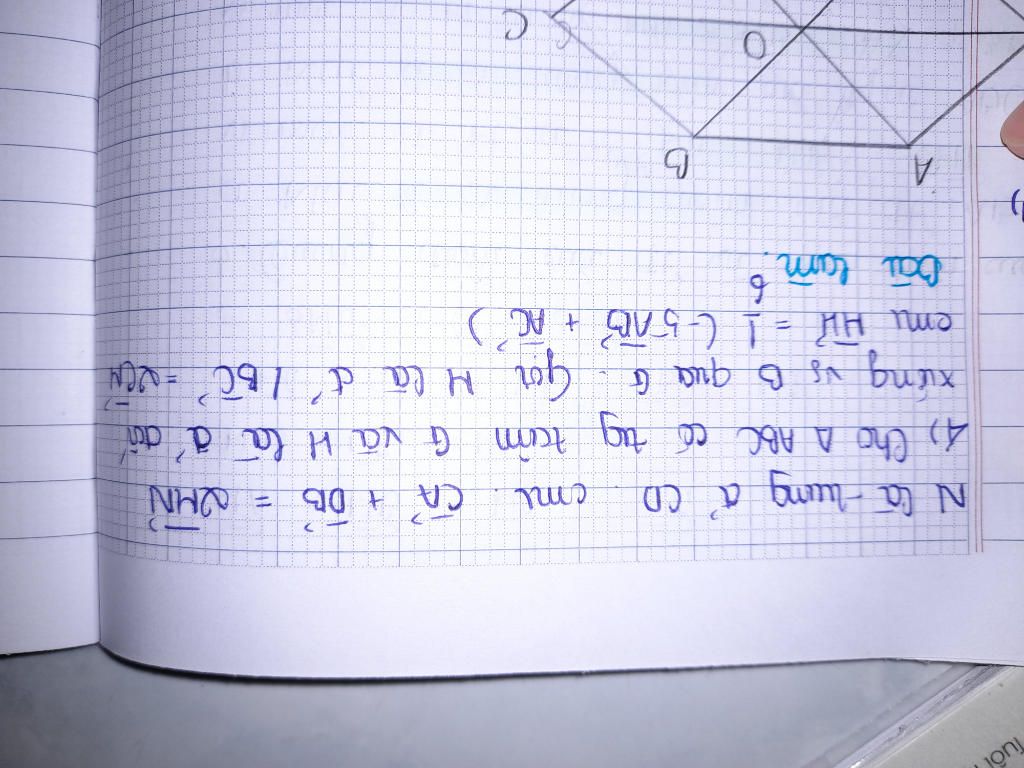 N là trung đ' CD. cmr CA + DB = 2MN
4) Cho Δ ABC có trg tâm G và H là đ' đối
xứng vs B qua G. Gọi M là đ' / BC = 2CM
cmr HM = 1/6 (-5AB + AC)
Bài làm.
A
B
O
C